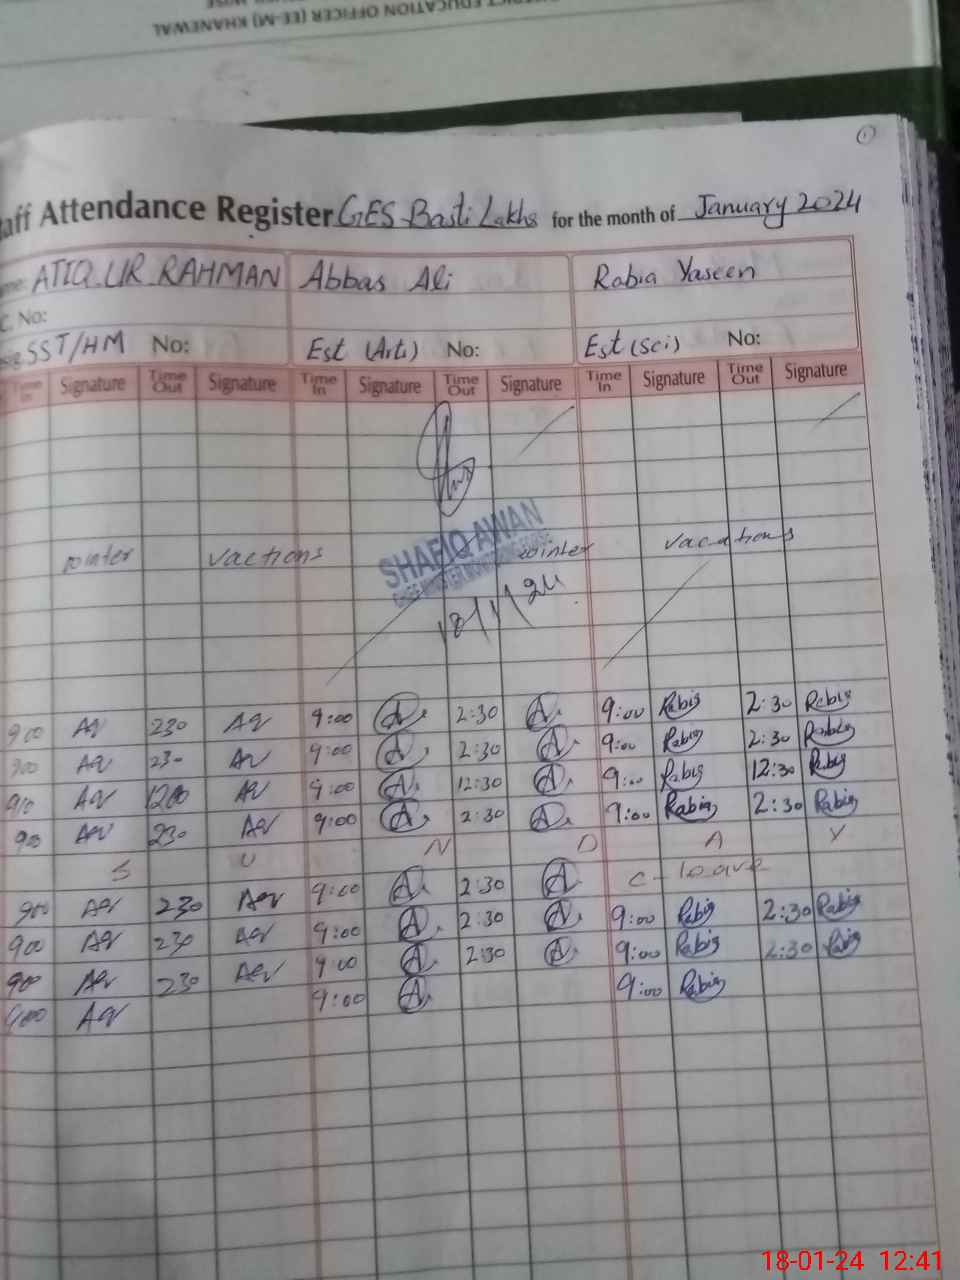 DISTRICT EDUCATION OFFICER (EE-M) KHANEWAL
aff Attendance Register GES Basti Lakhs for the month of January 2024
me: ATIQ UR RAHMAN Abbas Ali Rabia Yaseen
C. No:
SST/HM No: Est (Arts) No: Est (Sci) No:
Time In Signature Time Out Signature Time In Signature Time Out Signature Time In Signature Time Out Signature
SHAFIQ AWAN
winter vactions winter vacations
CHIEF MINISTER MONITORING
18/1/24
900 AQ 230 AQ 9:00 A 2:30 A 9:00 Rabia 2:30 Rabia
900 AQ 230 AQ 9:00 A 2:30 A 9:00 Rabia 2:30 Rabia
910 AQ 1200 AQ 9:00 A 12:30 A 9:00 Rabia 12:30 Rabia
900 AQ 230 AQ 9:00 A 2:30 A 9:00 Rabia 2:30 Rabia
S U N D A Y
900 AQ 230 AQ 9:00 A 2:30 A C-leave
900 AQ 230 AQ 9:00 A 2:30 A 9:00 Rabia 2:30 Rabia
900 AQ 230 AQ 9:00 A 2:30 A 9:00 Rabia 2:30 Rabia
900 AQ 9:00 A 9:00 Rabia
18-01-24 12:41